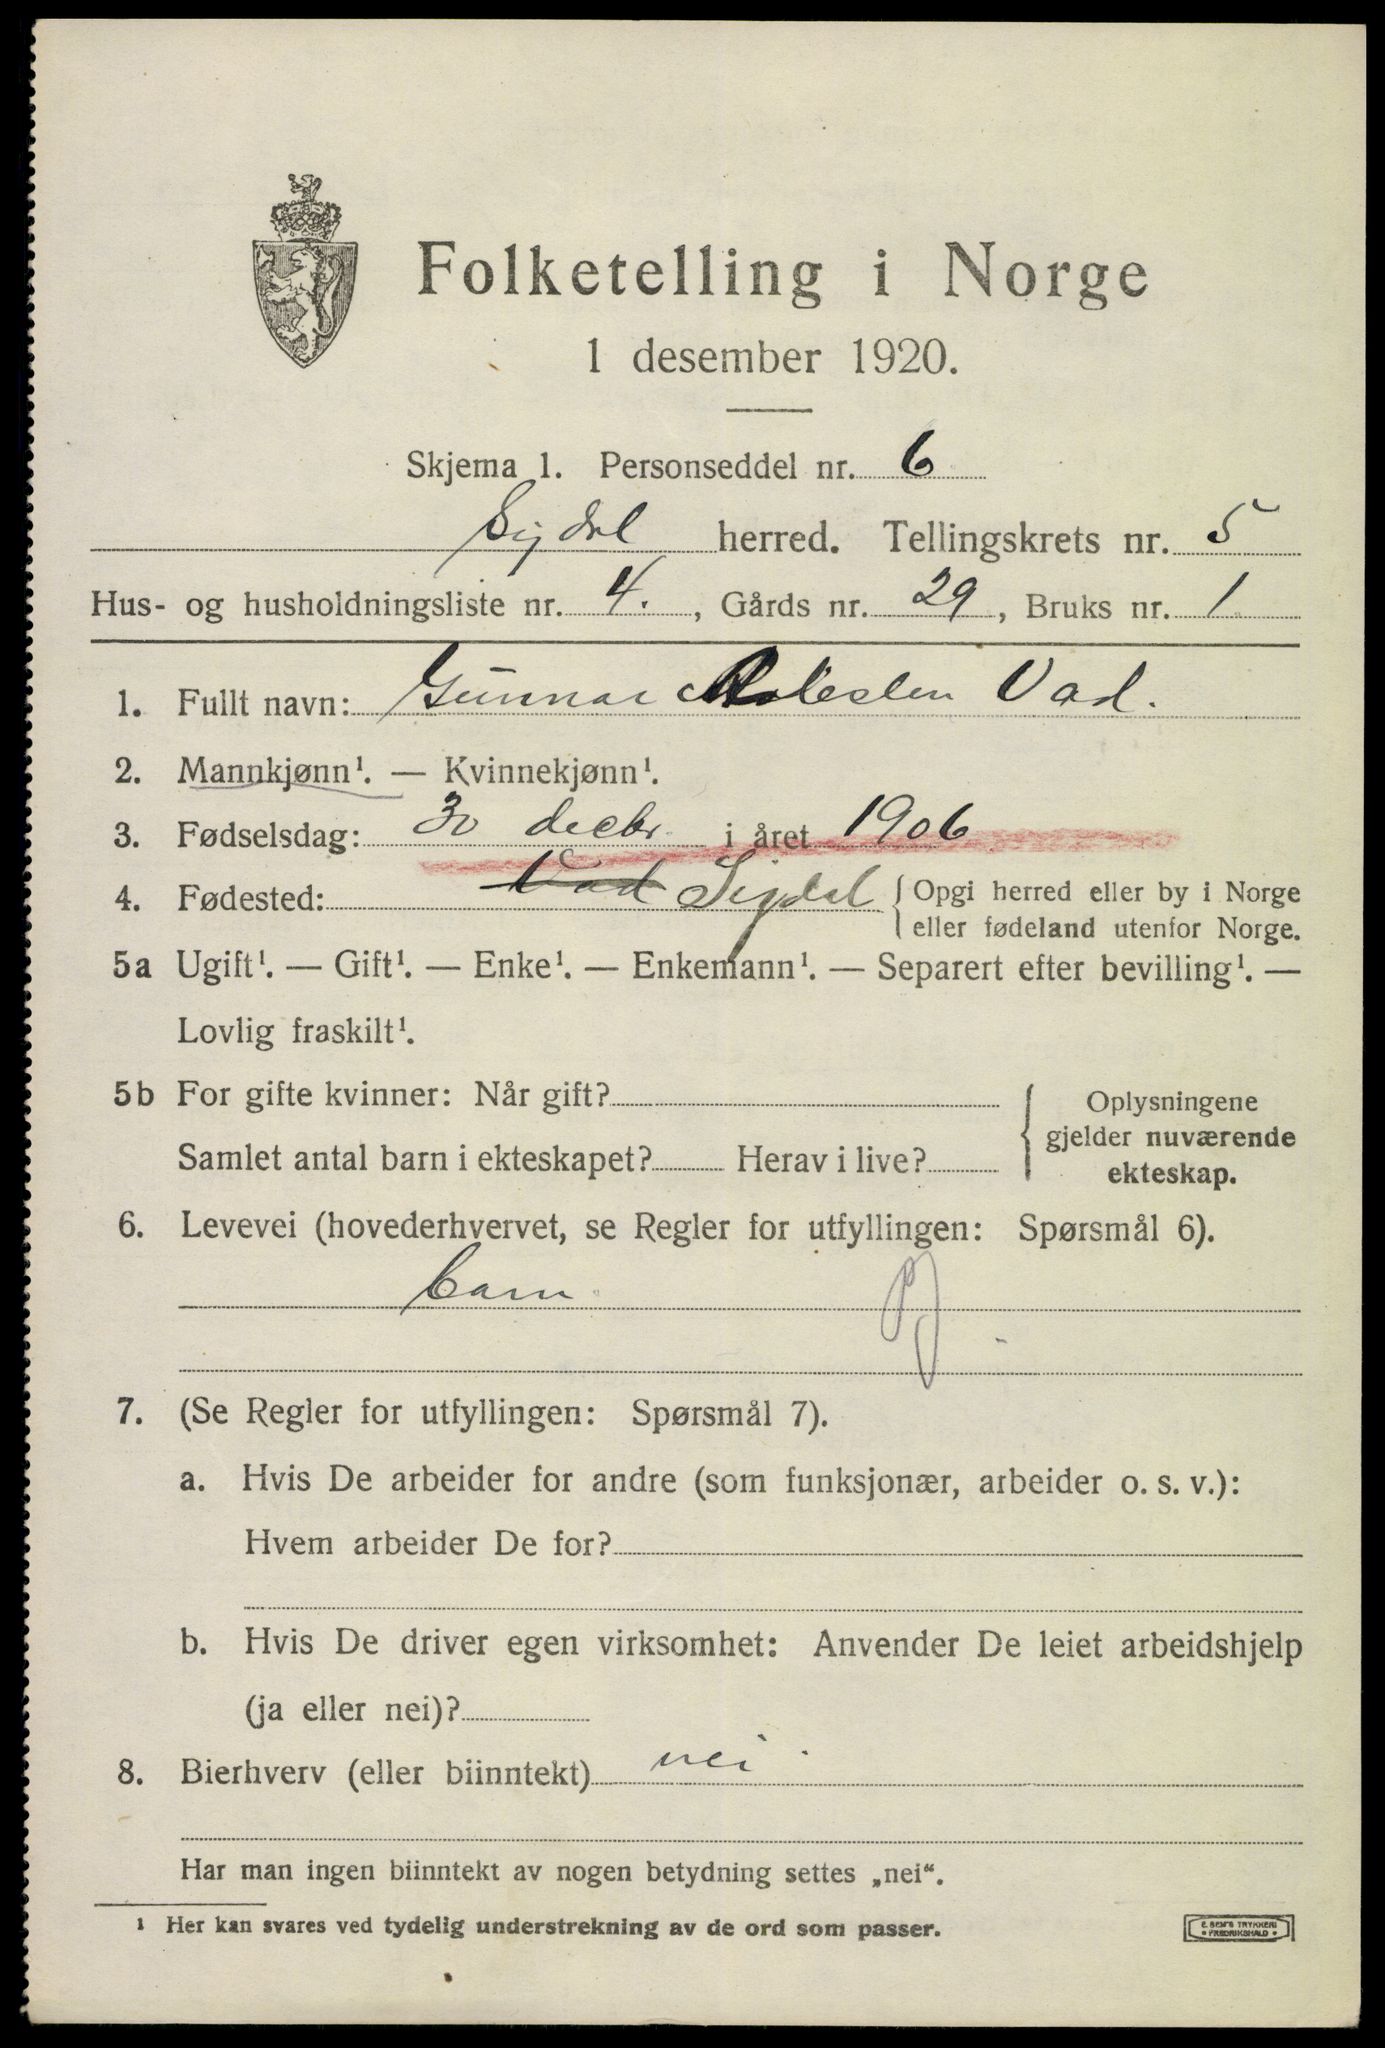 Folketelling i Norge
1 desember 1920.
Skjema 1. Personseddel nr. 6
Sigdal herred. Tellingskrets nr. 5
Hus- og husholdningsliste nr. 4. , Gårds nr. 29 , Bruks nr. 1
1. Fullt navn: Gunnar Vad.
2. Mannkjønn¹. — Kvinnekjønn¹.
3. Fødselsdag: 30 decbr. i året 1906
4. Fødested: Vad Sigdal { Opgi herred eller by i Norge
eller fødeland utenfor Norge.
5a Ugift¹. — Gift¹. — Enke¹. — Enkemann¹. — Separert efter bevilling¹. —
Lovlig fraskilt¹.
5b For gifte kvinner: Når gift?
Samlet antal barn i ekteskapet? Herav i live?
{ Oplysningene
gjelder nuværende
ekteskap.
6. Levevei (hovederhvervet, se Regler for utfyllingen: Spørsmål 6).
barn
7. (Se Regler for utfyllingen: Spørsmål 7).
a. Hvis De arbeider for andre (som funksjonær, arbeider o. s. v.):
Hvem arbeider De for?
b. Hvis De driver egen virksomhet: Anvender De leiet arbeidshjelp
(ja eller nei)?
8. Bierhverv (eller biinntekt) nei
Har man ingen biinntekt av nogen betydning settes „nei“.
¹ Her kan svares ved tydelig understrekning av de ord som passer.
E. SEM'S TRYKKERI
• FREDRIKSHALD •